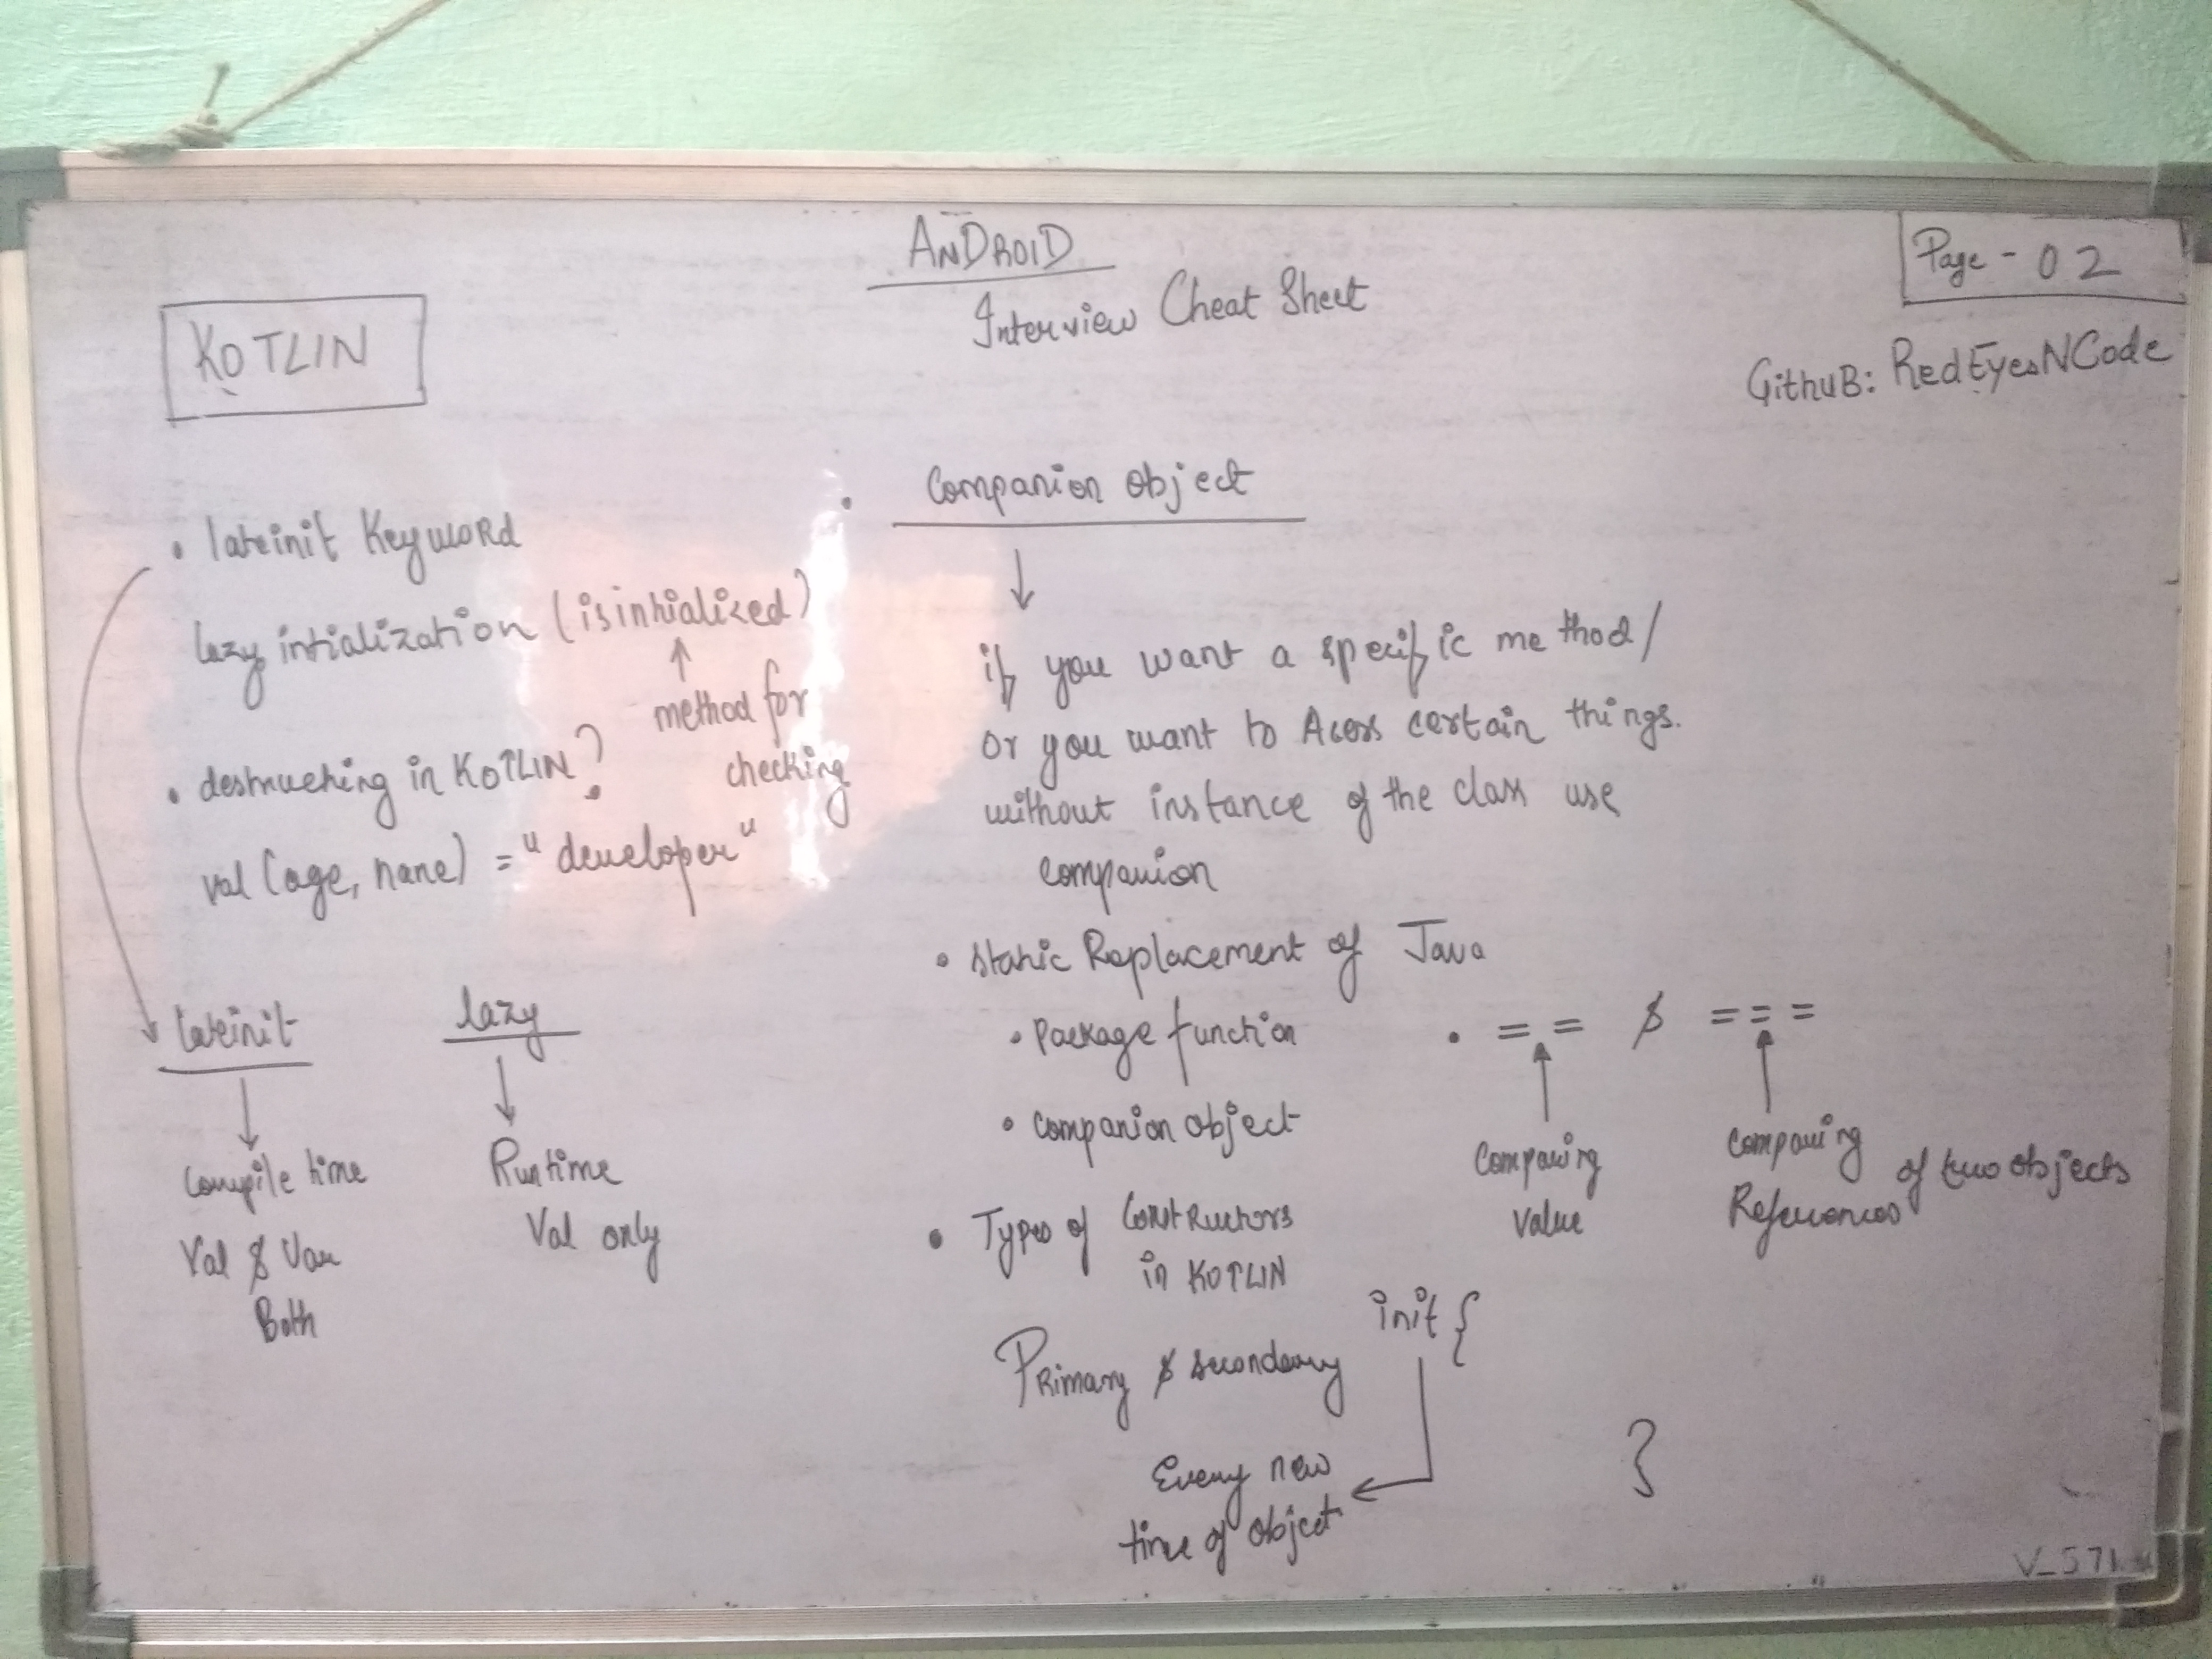 ANDROID
Interview Cheat Sheet
Page - 02
GithuB: RedEyesNCode
KOTLIN
• lateinit Keyword
lazy intialization (isinitialized)
↑
method for
checking
• destructring in KOTLIN?
val (age, name) = "developer"
lateinit
Compile time
Val & Var
Both
lazy
Runtime
Val only
• Companion object
↓
if you want a specific method/
or you want to Acess certain things.
without instance of the class use
companion
• static Replacement of Java
• Package function
• Companion object
• Types of Constructors
in KOTLIN
Primary & secondary
init {
}
Every new
time of object
• == & ===
Comparing
value
Comparing
References of two objects
V_571